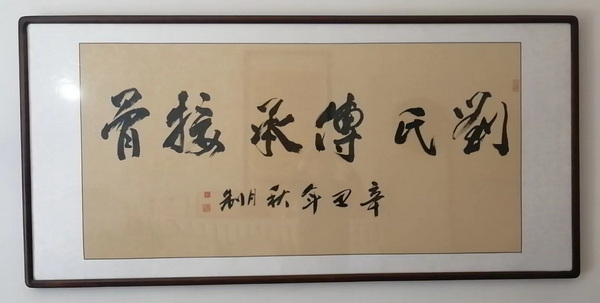 劉氏傳承接骨
辛丑年秋月制